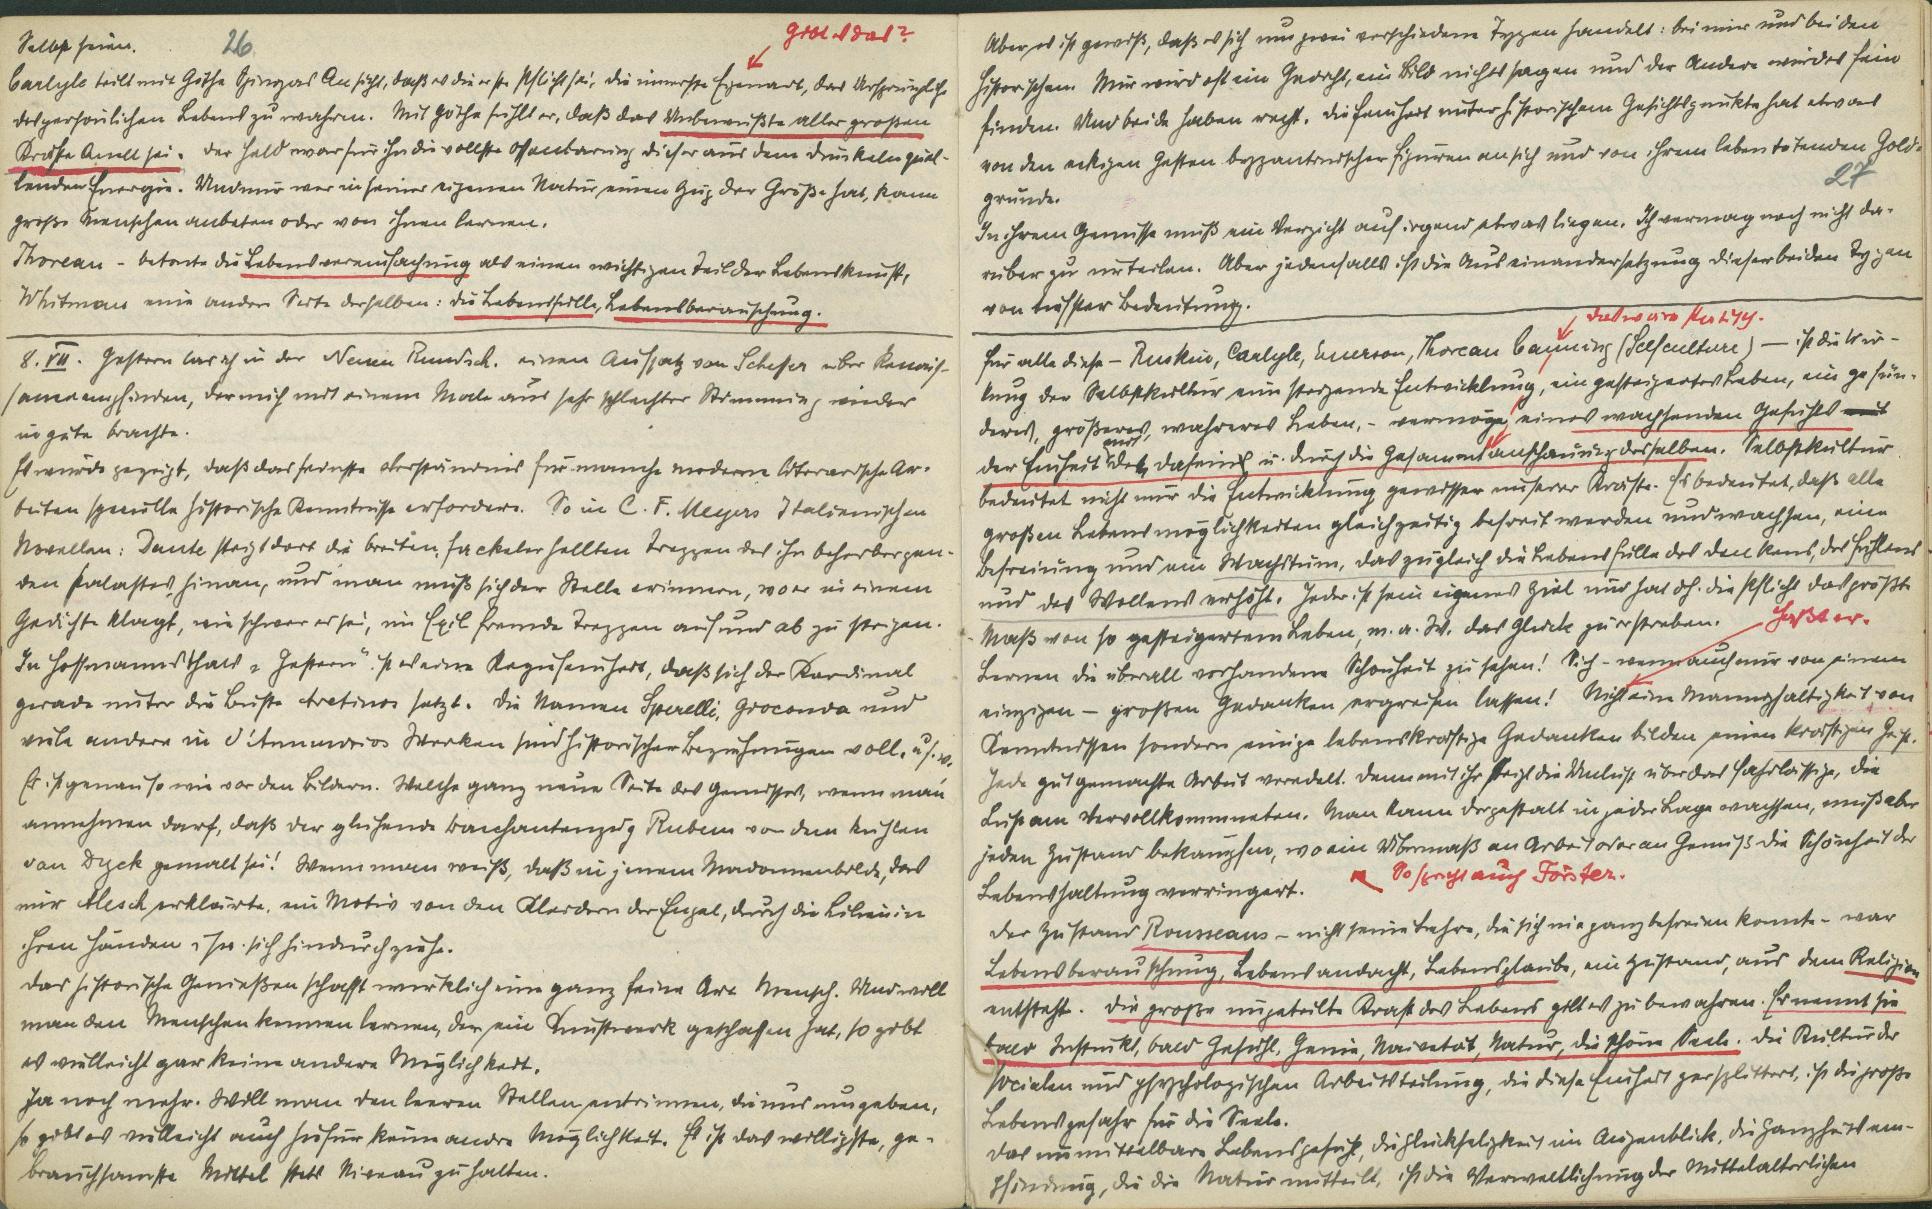 Selbst seien.
26
Gibt es das?
Carlyle teilt mit Göthe Spinozas Ansicht, daß es die erste Pflicht sei, die innerste Eigenart, das Ursprüngliche
des persönlichen Lebens zu wahren. Mit Göthe fühlt er, daß das Unbewußte aller großen
Kräfte Quell sei. Der Held war für ihn die vollste Offenbarung dieser aus dem Dunkeln quel-
lenden Energie. Und nur wer in seiner eigenen Natur einen Zug der Größe hat, kann
große Menschen anbeten oder von ihnen lernen.
Thoreau - betonte die Lebensvereinfachung als einen wichtigen Teil der Lebenskunst,
Whitman eine andere Seite derselben: die Lebensfülle, Lebensberauschung.
8. VII. Gestern las ich in der Neuen Rundsch. einen Aufsatz von Scheffer über Renais-
sanceempfinden, der mich mit einem Male aus sehr schlechter Stimmung wieder
in gute brachte.
Es wurde gezeigt, daß das feinste Verständnis für manche moderne literarische Ar-
beiten spezielle historische Kenntnisse erfordere. So in C. F. Meyers Italienischen
Novellen: Dante steigt dort die breiten, fackelerhellten Treppen des ihn beherbergen-
den Palastes hinan, und man muß sich der Stelle erinnern, wo er in einem
Gedichte klagt, wie schwer es sei, im Exil fremde Treppen auf und ab zu steigen.
In Hoffmannsthals „Gestern" ist es eine Regiefeinheit, daß sich der Kardinal
gerade unter die Büste Aretinos setzt. Die Namen Sperelli, Gioconda und
viele andere in d'Annunzios Werken sind historischer Beziehungen voll. u.s.w.
Es ist genau so wie vor den Bildern. Welche ganz neue Seite des Genusses, wenn man
annehmen darf, daß der glühende Bacchantenzug Rubens von dem kühlen
van Dyck gemalt sei! Wenn man weiß, daß in jenem Madonnenbilde, das
mir Flesch erklärte, ein Motiv von den Kleidern der Engel, durch die Lilien in
ihren Händen sich hindurchziehe.
Das historische Genießen schafft wirklich eine ganz feine Art Mensch. Und will
man den Menschen kennen lernen, der ein Kunstwerk geschaffen hat, so gibt
es vielleicht gar keine andere Möglichkeit.
Ja noch mehr. Will man den leeren Stellen entrinnen, die uns umgeben,
so gibt es vielleicht auch hiefür keine andre Möglichkeit. Es ist das willigste, ge-
brauchsamste Mittel stets Niveau zu halten.
Aber es ist gewiß, daß es sich um zwei verschiedene Typen handelt: bei mir und bei den
Historischen. Mir wird oft ein Gedicht, ein Bild nichts sagen und der Andere wird es fein
finden. Und beide haben recht. Die Feinheit unter historischem Gesichtspunkte hat etwas
von den eckigen Gesten byzantinischer Figuren an sich und von ihrem lebentötenden Gold-
grunde.
27
In ihrem Genusse muß ein Verzicht auf irgend etwas liegen. Ich vermag noch nicht da-
rüber zu urteilen. Aber jedenfalls ist die Auseinandersetzung dieser beiden Typen
von tiefster Bedeutung.
das wäre
Für alle diese - Ruskin, Carlyle, Emerson, Thoreau Canning (Selfculture) — ist die Wir-
kung der Selbstkultur eine steigende Entwicklung, ein gesteigertes Leben, ein gesün-
deres, größeres, wahreres Leben, - vermöge eines wachsenden Gefühls mit
der Einheit des Daseins u. durch die Gesammtanschauung desselben. Selbstkultur
bedeutet nicht nur die Entwicklung gewisser unserer Kräfte. Es bedeutet, daß alle
großen Lebensmöglichkeiten gleichzeitig befreit werden und wachsen, eine
Befreiung und ein Wachstum, das zugleich die Lebensfülle des Denkens, des Fühlens
und des Wollens erhöht. Jeder ist sein eigenes Ziel und hat dh. die Pflicht das größte
Maß von so gesteigertem Leben, m. a. W. das Glück zu erstreben.
Haßt er.
Lernen die überall vorhandene Schönheit zu sehen! Sich - wenn auch nur von einem
einzigen - großen Gedanken ergreifen lassen! Nicht eine Mannigfaltigkeit von
Kenntnissen sondern einige lebenskräftige Gedanken bilden einen kräftigen Geist.
Jede gut gemachte Arbeit veredelt. Denn mit ihr steigt die Unlust über das Fahrlässige, die
Lust am Vervollkommneten. Man kann dergestalt in jeder Lage wachsen, muß aber
jeden Zustand bekämpfen, wo ein Übermaß an Arbeit oder an Genuß die Schönheit der
Lebenshaltung verringert.
So spricht auch Förster.
Der Zustand Rousseaus - nicht seine Lehre, die sich nie ganz befreien konnte - war
Lebensberauschung, Lebensandacht, Lebensglaube, ein Zustand, aus dem Religion
entsteht. Die große ungeteilte Kraft des Lebens gilt es zu bewahren. Er nennt sie
bald Instinkt, bald Gefühl, Genie, Naivetät, Natur, die schöne Seele. Die Kultur der
socialen und psychologischen Arbeitsteilung, die diese Einheit zersplittert, ist die große
Lebensgefahr für die Seele.
Das unmittelbare Lebensgefühl, die Glückseligkeit im Augenblick, die Ganzheitsem-
pfindung, die die Natur mitteilt, ist die Verweltlichung der Mittelalterlichen